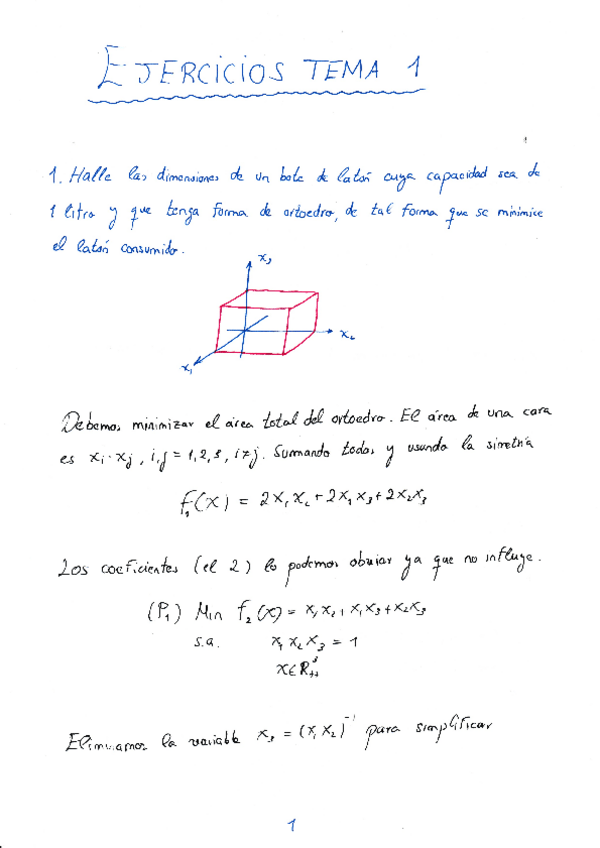 EJERCICIOS TEMA 1
1
1. Halle las dimensiones de un bote de latón cuya capacidad sea de
1 litro y que tenga forma de ortoedro, de tal forma que se minimice
el latón consumido.
x₃
x₂
x₁
Debemos minimizar el área total del ortoedro. El área de una cara
es xᵢ·xⱼ, i,j = 1,2,3, i≠j. Sumando todas y usando la simetría
f₁(x) = 2x₁x₂+2x₁x₃+2x₂x₃
Los coeficientes (el 2) lo podemos obviar ya que no influye.
(P₁) Min f₂(x) = x₁x₂+x₁x₃+x₂x₃
s.a. x₁x₂x₃ = 1
x∈ℝ³₊₊
Eliminamos la variable x₃ = (x₁x₂)⁻¹ para simplificar
1